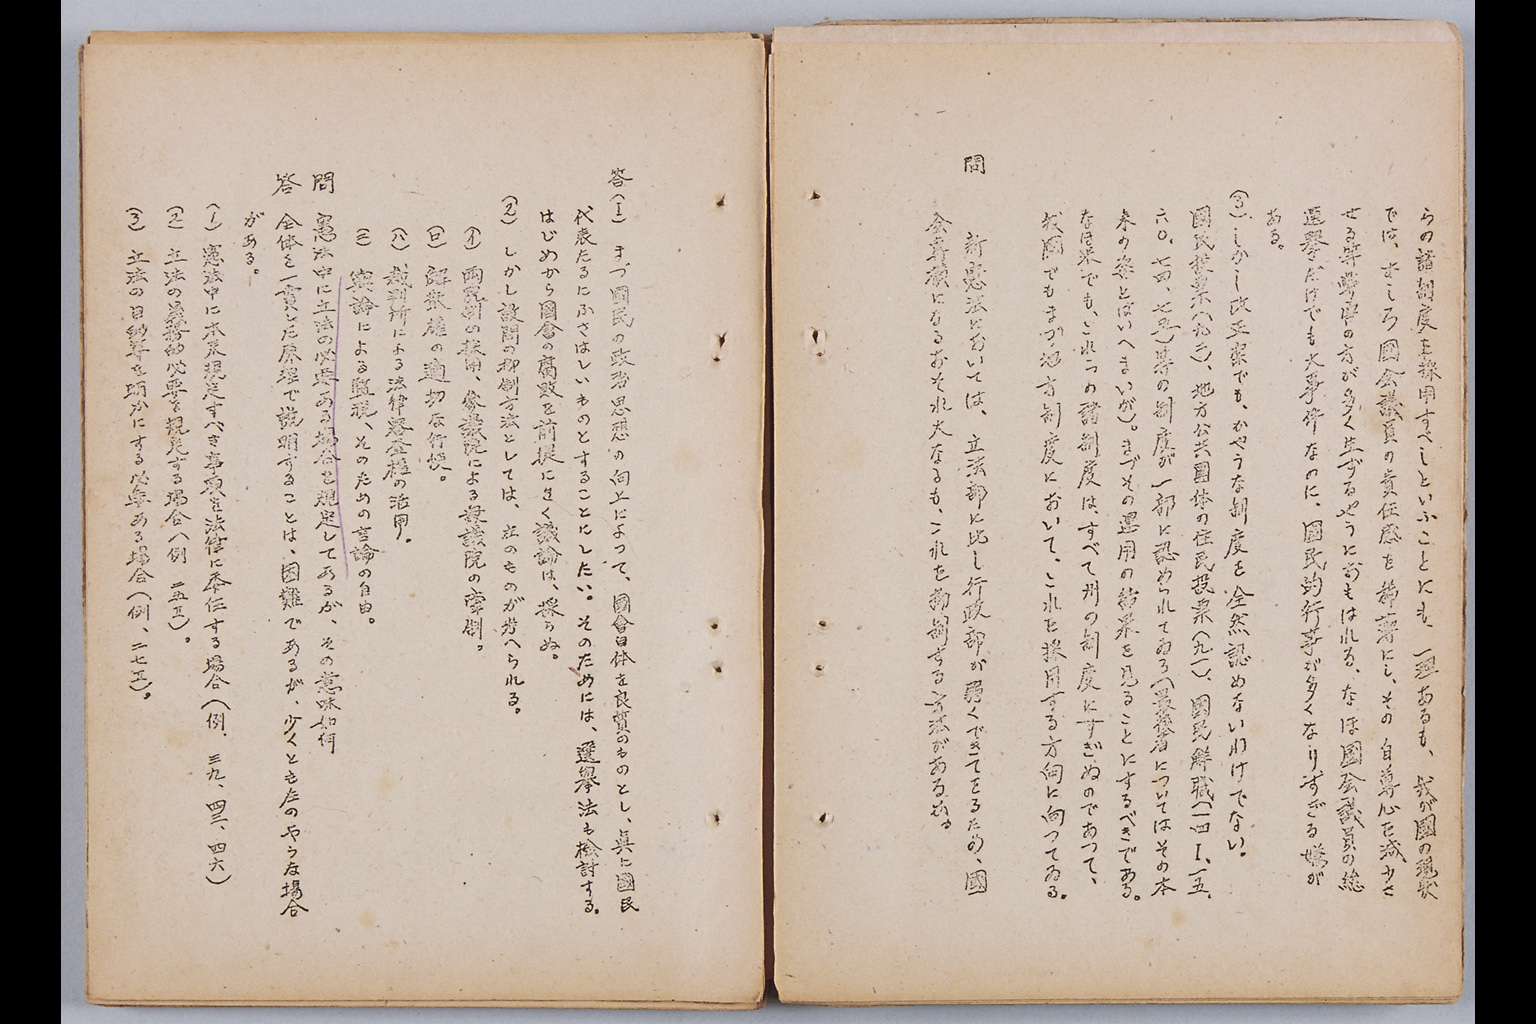 らの諸制度を採用すべしといふことにも、一理あるも、我が國の現状
では、むしろ國会議員の責任感を稀薄にし、その自尊心を減少さ
せる等弊害の方が多く生ずるやうにおもはれる、なほ國会議員の総
選擧だけでも大事件なのに、國民的行事が多くなりすぎる嫌が
ある。
(3) しかし改正案でも、かやうな制度を全然認めないわけでない。
國民投票(九二)、地方公共團体の住民投票(九一)、國民解職(一四Ⅰ、一五、
六〇、七四、七五)等の制度が一部に認められてゐる(最後者についてはその本
来の姿とはいへまいが)。まづその運用の結果を見ることにするべきである。
なほ米でも、これらの諸制度は、すべて州の制度にすぎぬのであつて、
我國でもまづ地方制度において、これを採用する方向に向つてゐる。
問
新憲法においては、立法部に比し行政部が弱くできてをるため、國
会専横になるおそれ大なるも、これを抑制する方法がある＿か。
答(1) まづ國民の政治思想の向上によつて、國會自体を良質のものとし、眞に國民
代表たるにふさはしいものとすることにしたい。そのためには、選擧法も檢討する。
はじめから國會の腐敗を前提におく議論は、採らぬ。
(2) しかし設問の抑制方法としては、左のものが考へられる。
(イ) 両院制の採用、參議院による衆議院の牽制。
(ロ) 解散権の適切な行使。
(ハ) 裁判所による法律審査権の活用。
(ニ) 輿論による監視、そのための言論の自由。
問 憲法中に立法の必要ある場合を規定してあるが、その意味如何
答 全体を一貫した原理で説明することは、困難であるが、少くとも左のやうな場合
がある。
(1) 憲法中に本来規定すべき事項を法律に委任する場合(例、三九、四三、四六)
(2) 立法の義務的必要を規定する場合(例 二五Ⅱ)。
(3) 立法の目的等を明かにする必要ある場合(例、二七Ⅱ)。